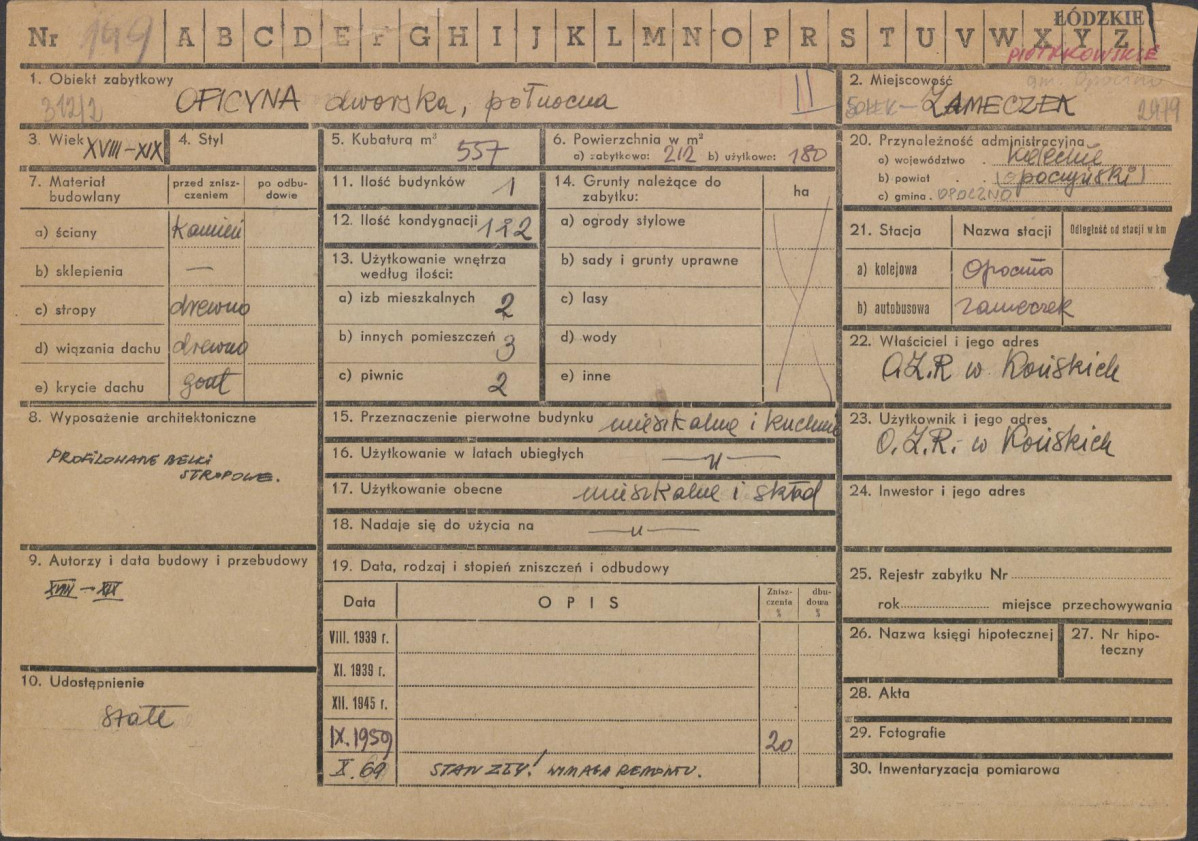 Nr 199 A B C D E F G H I J K L M N O P R S T U V W X Y Z
ŁÓDZKIE
PIOTRKOWSKIE
1. Obiekt zabytkowy
312/2
OFICYNA dworska, północna
II
2. Miejscowość
gm. Opoczno
SOŁEK – ZAMECZEK
3. Wiek XVIII–XIX
4. Styl
5. Kubatura m³ 557
6. Powierzchnia w m²
a) zabytkowa: 212 b) użytkowa: 180
20. Przynależność administracyjna
a) województwo . kieleckie
b) powiat . . (opoczyński)
c) gmina . OPOCZNO
7. Materiał budowlany
przed zniszczeniem
po odbudowie
a) ściany kamień
b) sklepienia —
c) stropy drewno
d) wiązania dachu drewno
e) krycie dachu gont
11. Ilość budynków 1
12. Ilość kondygnacji 1 i 2
13. Użytkowanie wnętrza
według ilości:
a) izb mieszkalnych 2
b) innych pomieszczeń 3
c) piwnic 2
14. Grunty należące do
zabytku:
ha
a) ogrody stylowe
b) sady i grunty uprawne
c) lasy
d) wody
e) inne
21. Stacja Nazwa stacji Odległość od stacji w km
a) kolejowa Opoczno
b) autobusowa Zameczek
22. Właściciel i jego adres
O.Z.R w Końskich
23. Użytkownik i jego adres
O.Z.R. w Końskich
8. Wyposażenie architektoniczne
PROFILOWANE BELKI
STROPOWE.
15. Przeznaczenie pierwotne budynku mieszkalne i kuchnie
16. Użytkowanie w latach ubiegłych —"—
17. Użytkowanie obecne mieszkalne i skład
18. Nadaje się do użycia na —"—
24. Inwestor i jego adres
9. Autorzy i data budowy i przebudowy
XVIII – XIX
10. Udostępnienie
stałe
19. Data, rodzaj i stopień zniszczeń i odbudowy
Data OPIS Zniszczenia % dbudowa %
VIII. 1939 r.
XI. 1939 r.
XII. 1945 r.
IX. 1959 20
X. 69 STAN ZŁY! WYMAGA REMONTU.
25. Rejestr zabytku Nr
rok miejsce przechowywania
26. Nazwa księgi hipotecznej
27. Nr hipoteczny
28. Akta
29. Fotografie
30. Inwentaryzacja pomiarowa